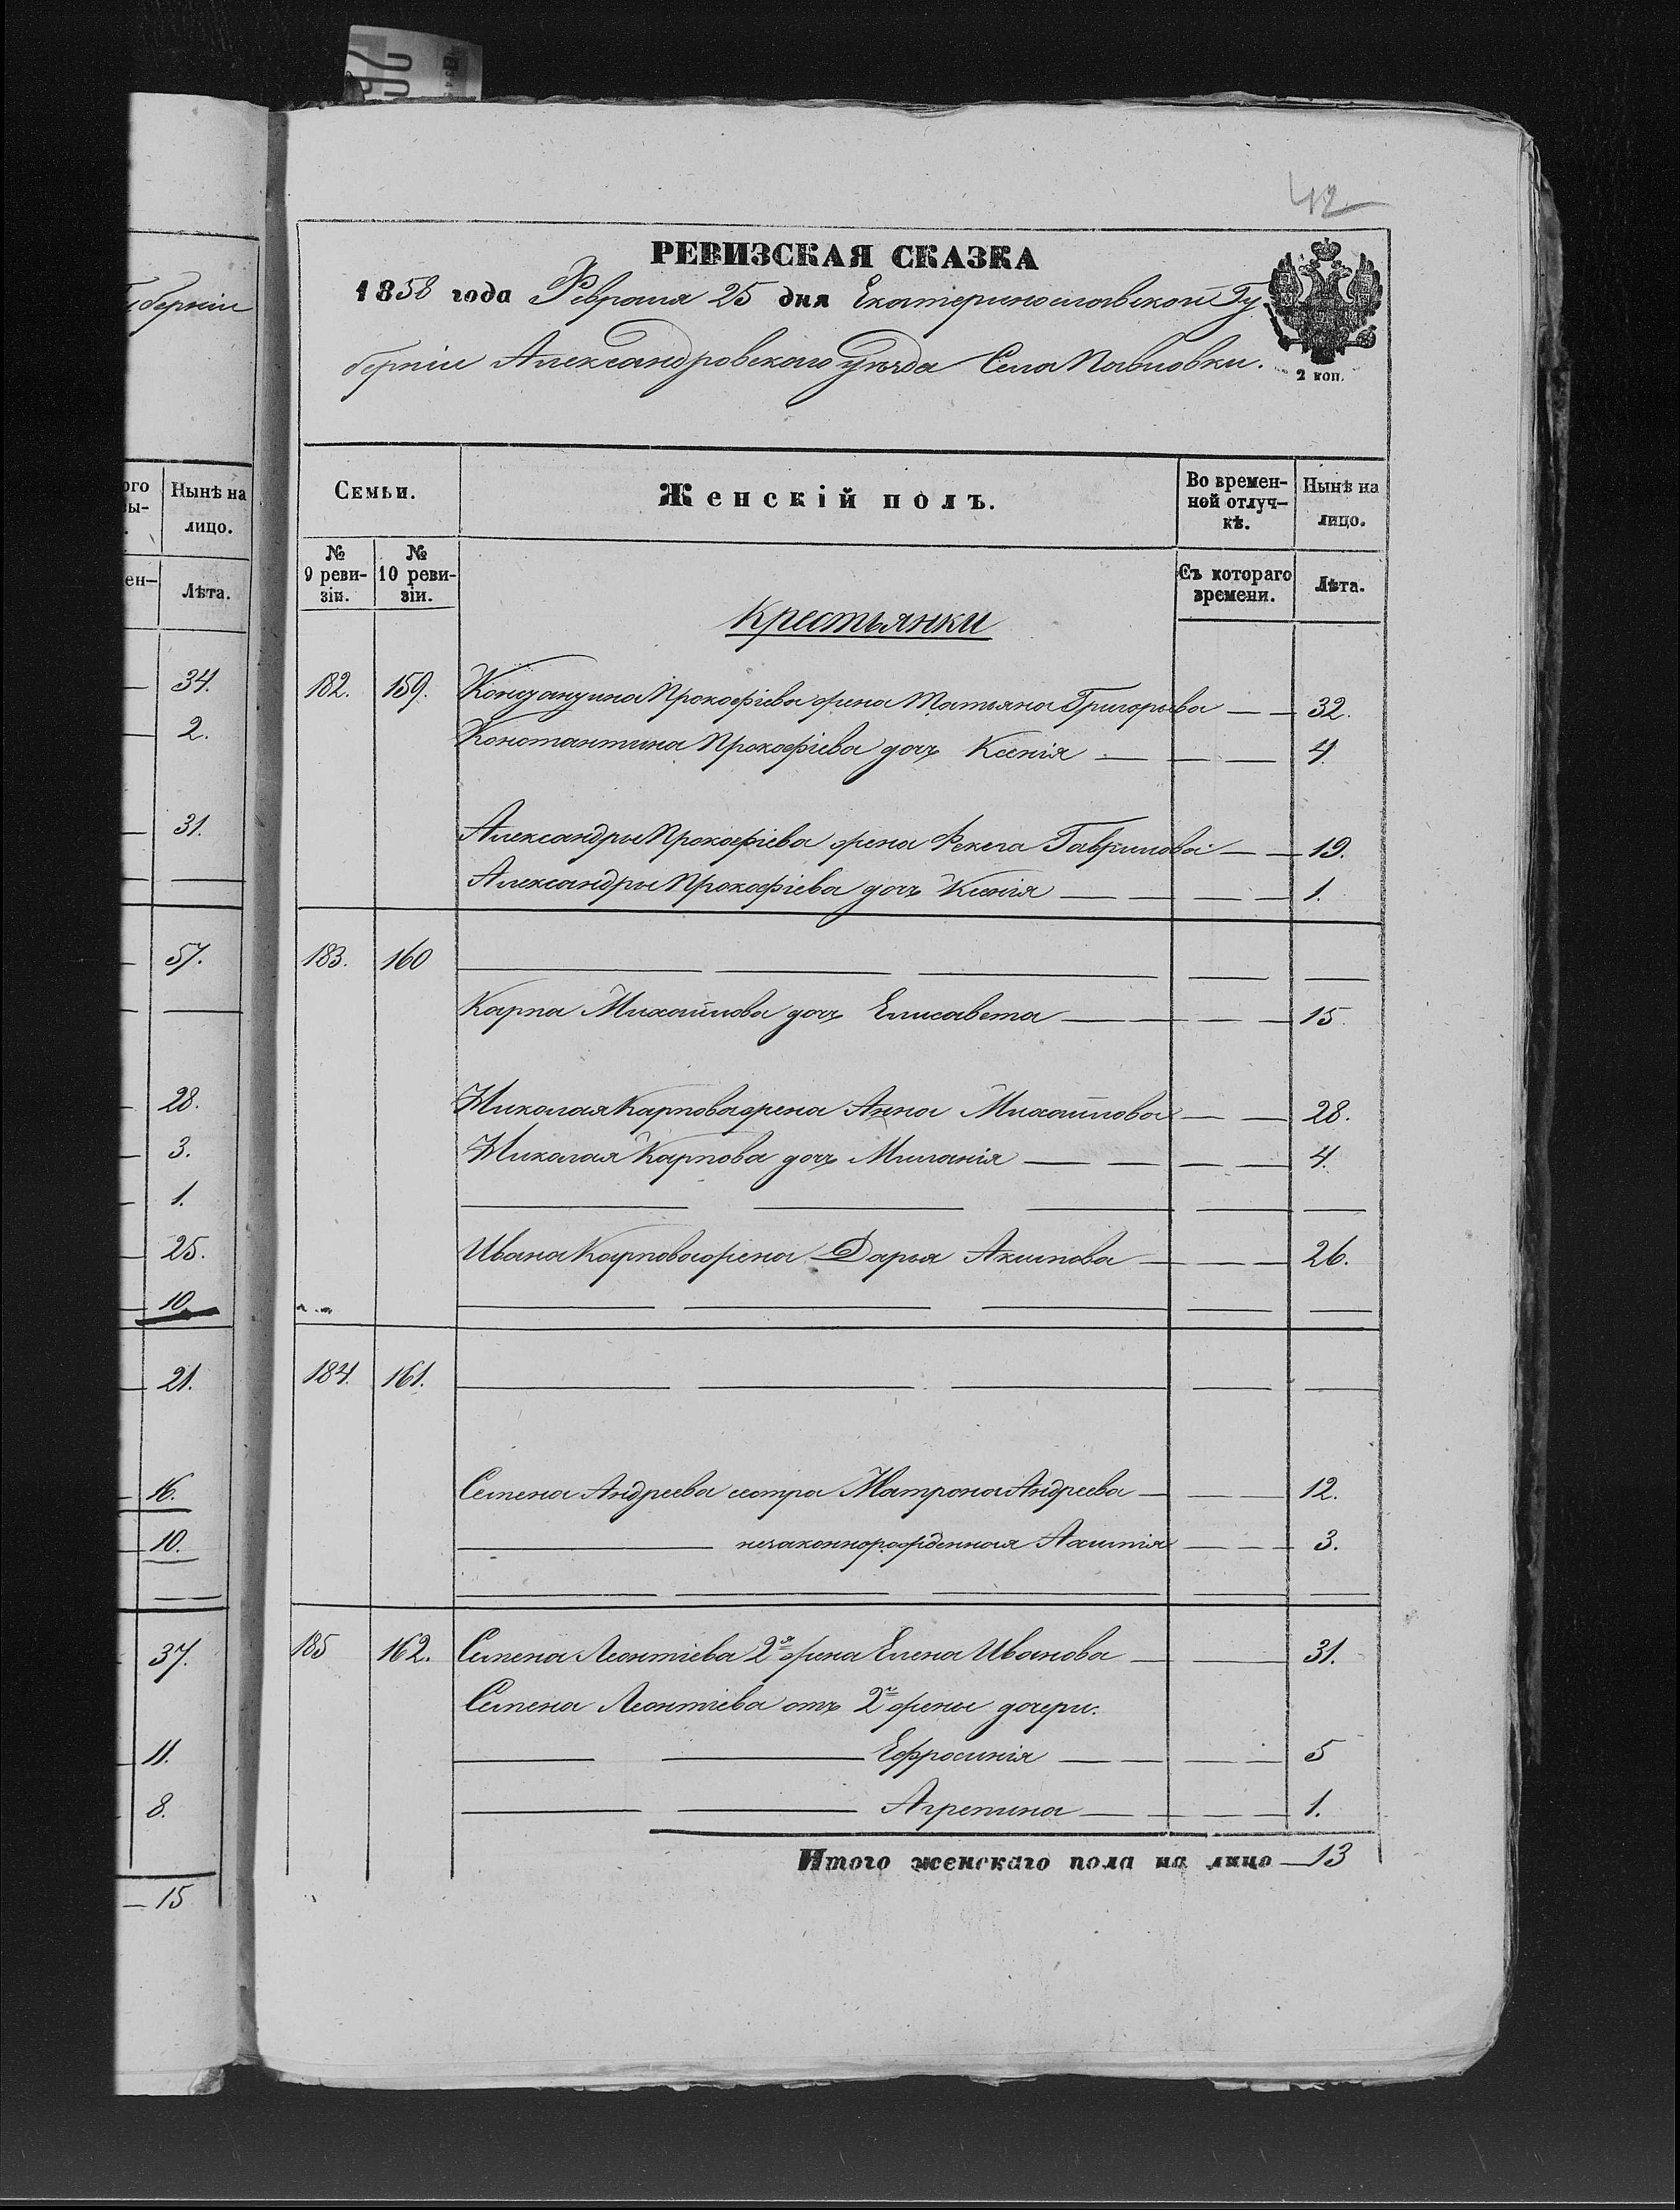 42
РЕВИЗСКАЯ СКАЗКА
1858 года Февраля 25 дня Екатеринославской Гу
берніи Александровскаго уѣзда Села Павловки.
2 коп.
Семьи.
Женскій полъ.
Во времен-
ной отлуч-
кѣ.
Нынѣ на
лицо.
№
9 реви-
зіи.
№
10 реви-
зіи.
Съ котораго
времени.
Лѣта.
Крестьянки
182. 159. Прокофіева жена Татьяна Григорьева 32.
Константина Прокофіева дочь Ксенія 4.
Александры Прокофіева жена Фекла Гаврилова 19.
Александры Прокофіева дочь Ксенія 1.
183. 160
Карпа Михайлова дочь Елисавета 15.
Николая Карпова жена Анна Михайлова 28.
Николая Карпова дочь Миланія 4.
Ивана Карпова жена Дарья Акимова 26.
184. 161.
Семена Андреева сестра Матрона Андреева 12.
незаконнорожденная 3.
185 162. Семена Леонтіева 2я жена Елена Иванова 31.
Семена Леонтіева отъ 2й жены дочери:
Ефросинія 5
Агрепина 1.
Итого женскаго пола на лицо 13
губерніи
ого
ы-
Нынѣ на
лицо.
ен-
Лѣта.
34.
2.
31.
57.
28.
3.
1.
25.
10.
21.
16.
10.
37.
11.
8.
15